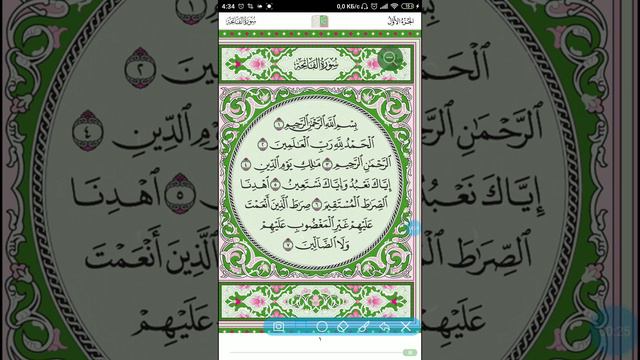 4:34 0,0 КБ/с
سُورَةُ الفَاتِحَةِ الجُزْءُ الأَوَّلُ
سُورَةُ الفَاتِحَةِ
بِسْمِ ٱللَّهِ ٱلرَّحْمَٰنِ ٱلرَّحِيمِ ١
ٱلْحَمْدُ لِلَّهِ رَبِّ ٱلْعَٰلَمِينَ ٢
ٱلرَّحْمَٰنِ ٱلرَّحِيمِ ٣ مَٰلِكِ يَوْمِ ٱلدِّينِ ٤
إِيَّاكَ نَعْبُدُ وَإِيَّاكَ نَسْتَعِينُ ٥ ٱهْدِنَا
ٱلصِّرَٰطَ ٱلْمُسْتَقِيمَ ٦ صِرَٰطَ ٱلَّذِينَ أَنْعَمْتَ
عَلَيْهِمْ غَيْرِ ٱلْمَغْضُوبِ عَلَيْهِمْ
وَلَا ٱلضَّآلِّينَ ٧
١